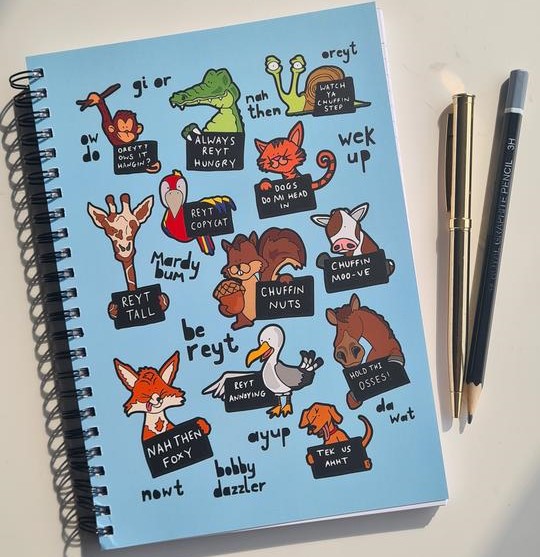 gi or
oreyt
nah
then
WATCH
YA
CHUFFIN
STEP
ow
do
OREYT?
OWS IT
HANGIN?
ALWAYS
REYT
HUNGRY
wek
up
DOGS
DO MI HEAD
IN
REYT
COPYCAT
Mardy
bum
CHUFFIN
MOO-VE
REYT
TALL
CHUFFIN
NUTS
be
reyt
REYT
ANNOYING
HOLD THI
OSSES!
da
wat
NAH THEN
FOXY
ayup
TEK US
AHHT
nowt
bobby
dazzler
GRAPHITE PENCIL 3H